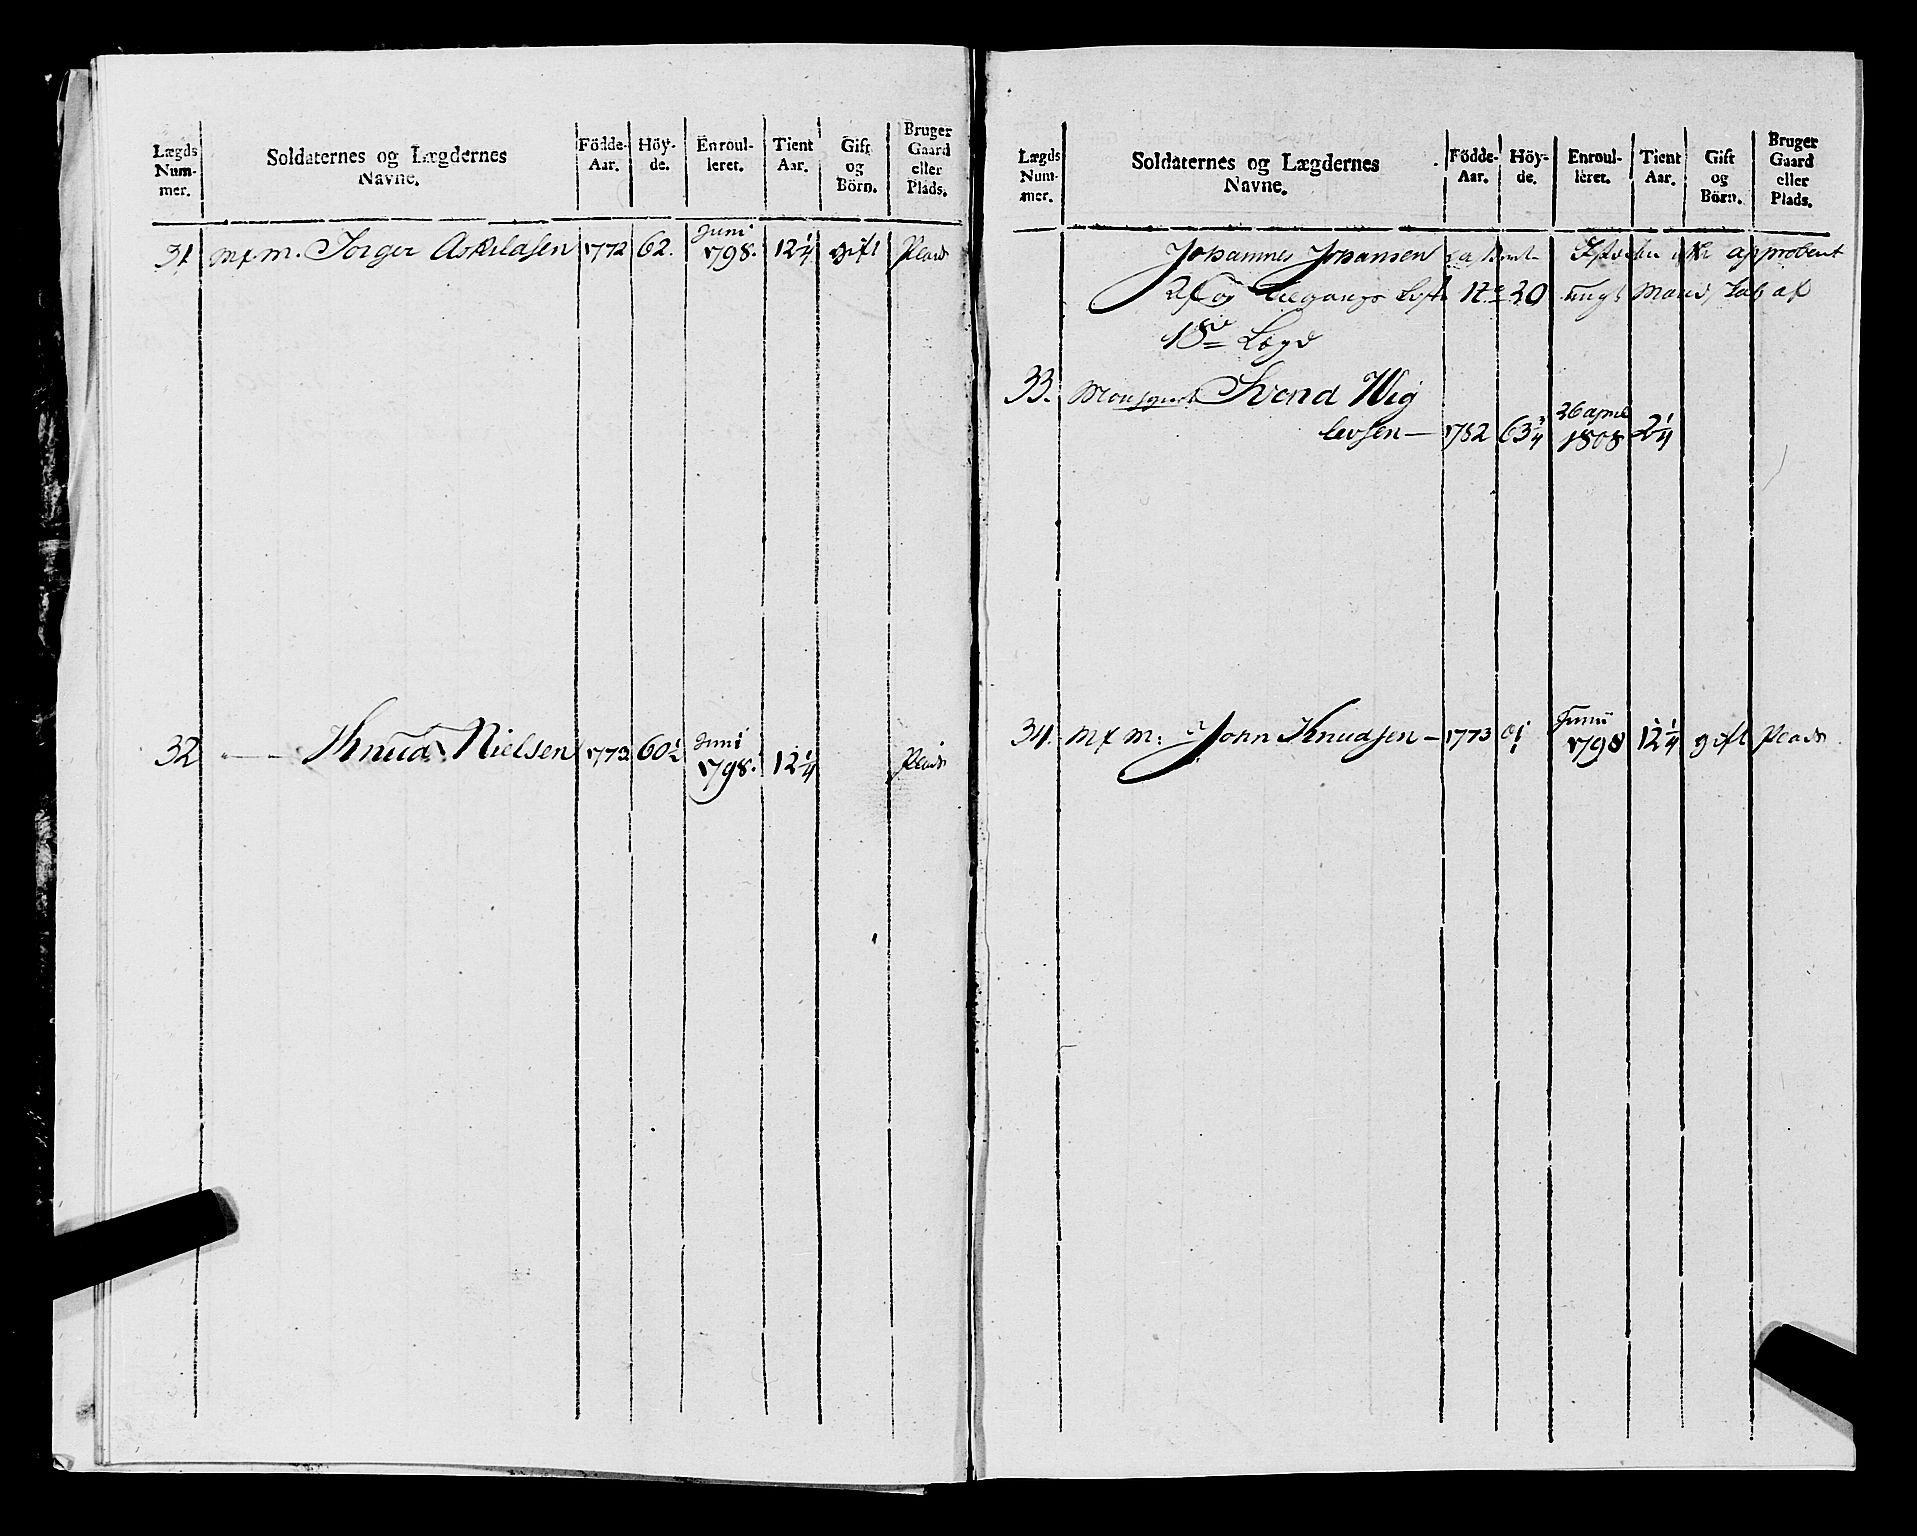 Lægds Num-mer. Soldaternes og Lægdernes Navne. Födde-Aar. Höy-de. Enroul-leret. Tient Aar. Gift og Börn. Bruger Gaard eller Plads.
31 Mf. M. Torger Askildsen 1772 62. Juni 1798. 12 1/4 gift Plads
32 Knud Nielsen 1773 60 1/2 Juni 1798. 12 1/4 Plads
Lægds Num-mer. Soldaternes og Lægdernes Navne. Födde-Aar. Höy-de. Enroul-leret. Tient Aar. Gift og Börn. Bruger Gaard eller Plads.
Johannes Johansen approbert
og No 20 ungt Mand af
18de Lægd
33. Svend Wig
levsen — 1782 63 3/4 26 april 1808 2 1/4
34. Mf M: John Knudsen — 1773 61 Junii 1798 12 1/4 gift Plads